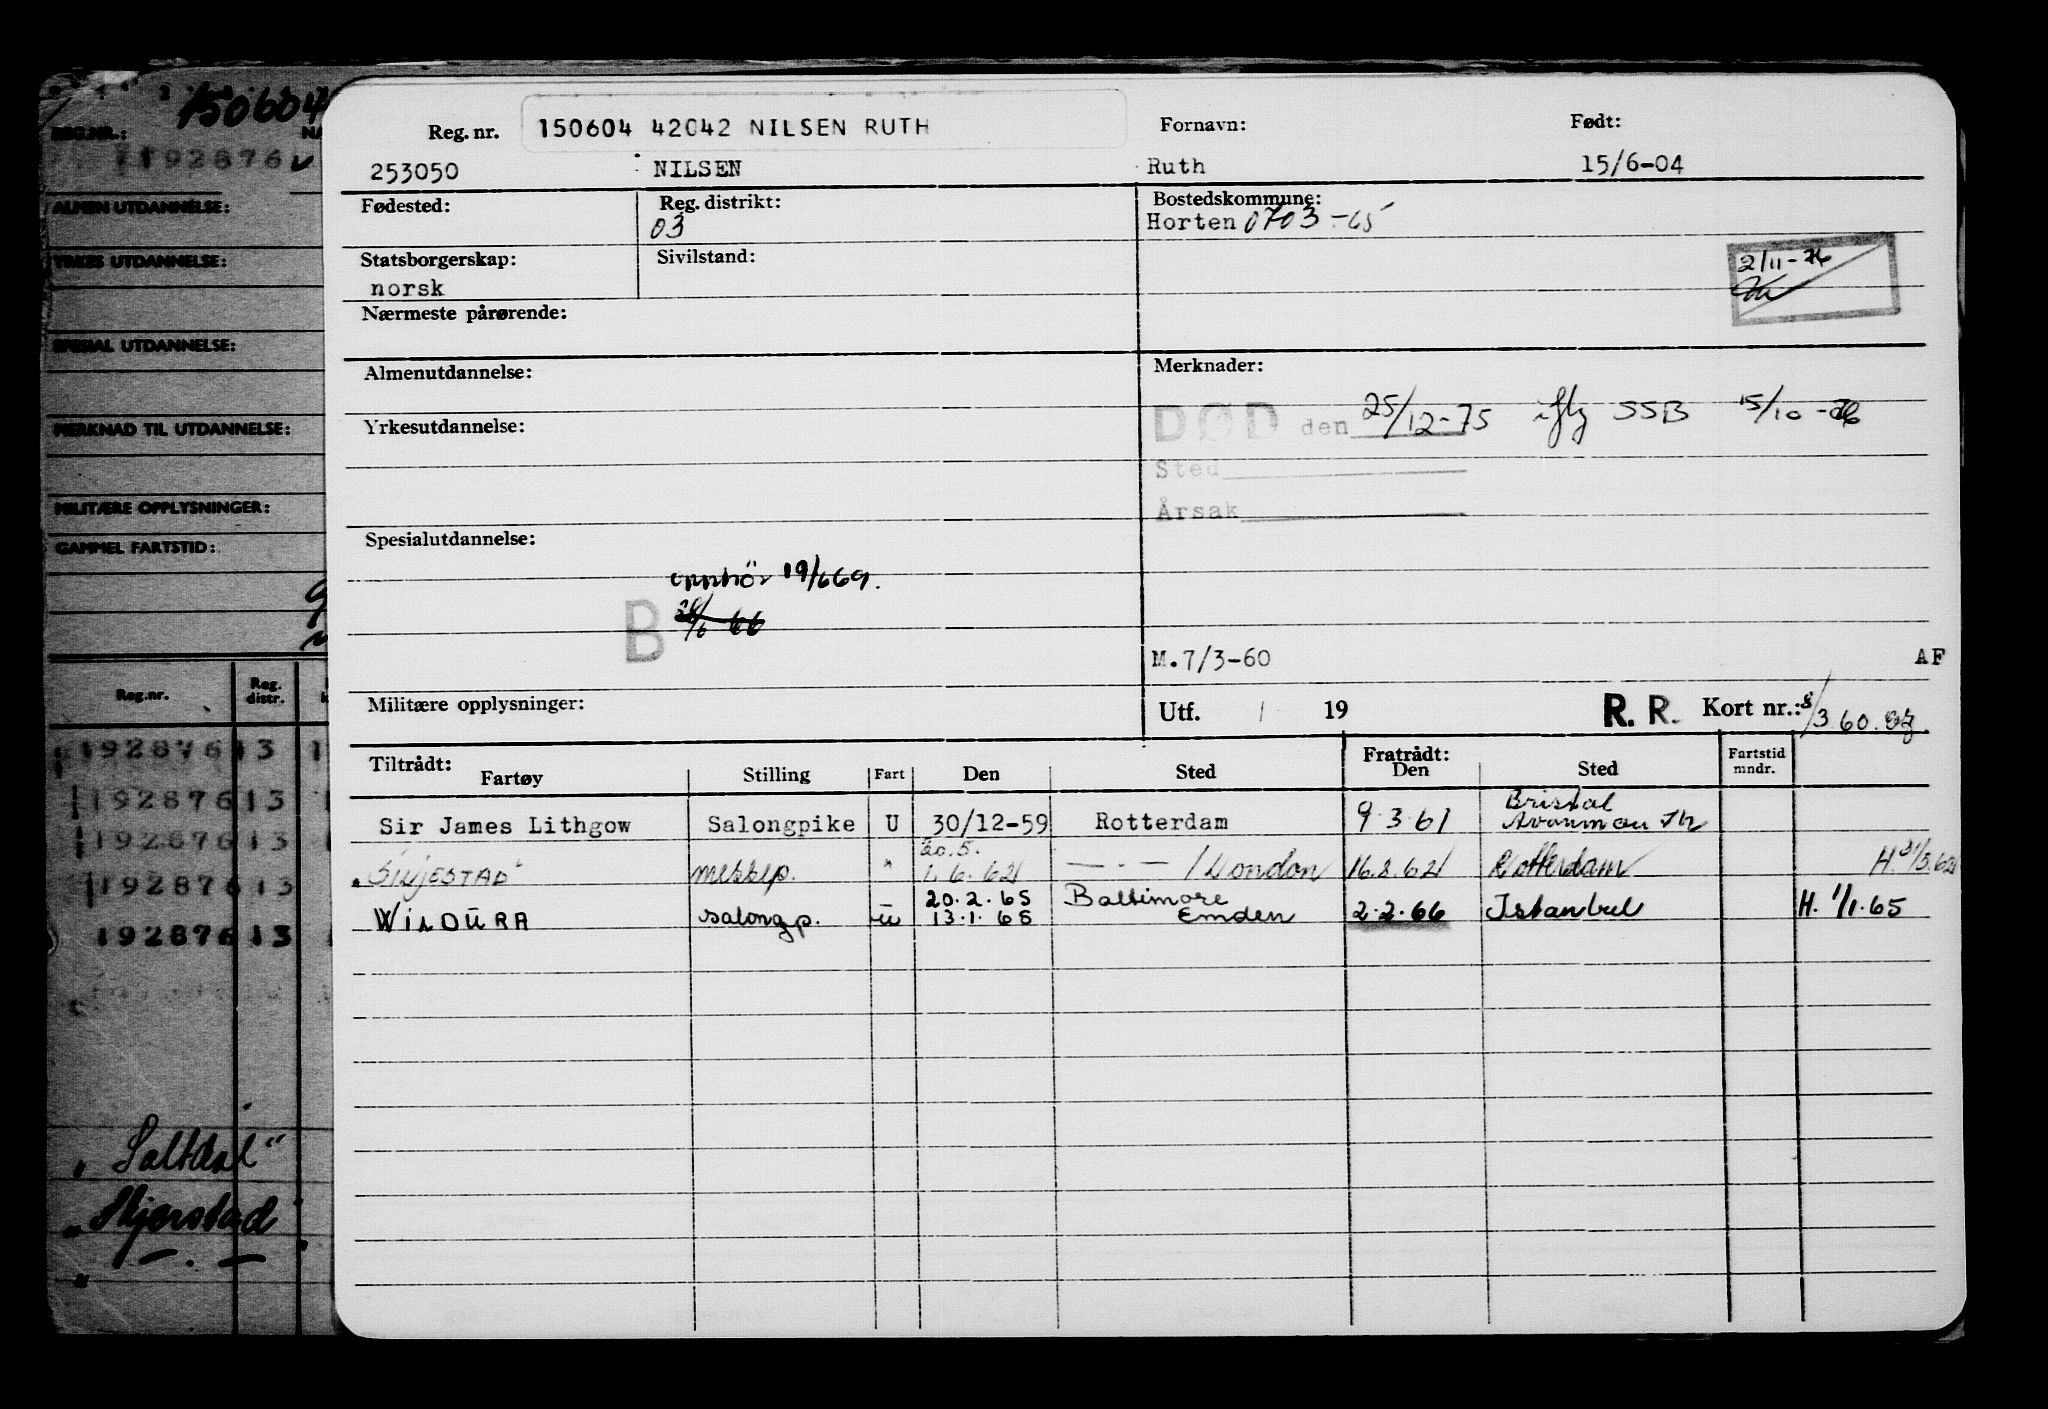 150604
REG.NR.:
192876
ALMEN UTDANNELSE:
YRKES UTDANNELSE:
SPESIAL UTDANNELSE:
MERKNAD TIL UTDANNELSE:
MILITÆRE OPPLYSNINGER:
GAMMEL FARTSTID:
Reg.nr. Reg. distr.
192876 13
192876 13
192876 13
192876 13
192876 13
"Saltdal"
Reg. nr. 150604 42042 NILSEN RUTH Fornavn: Født:
253050 NILSEN Ruth 15/6-04
Fødested: Reg. distrikt: Bostedskommune:
03 Horten 0703-65
Statsborgerskap: Sivilstand:
norsk
2/11-76
Nærmeste pårørende:
Almenutdannelse: Merknader:
DØD den 25/12-75 iflg SSB 15/10-76
Yrkesutdannelse:
Sted
Årsak
Spesialutdannelse:
opphör 19/669.
B 66
M.7/3-60 AF
Militære opplysninger: Utf. / 19 R. R. Kort nr.: 8/3 60.
Tiltrådt: Fratrådt:
Fartøy Stilling Fart Den Sted Den Sted Fartstid mndr.
Bristol
Sir James Lithgow Salongpike U 30/12-59 Rotterdam 9.3.61
20.5.
messp. " 1.6.62 — " — / London 16.8.62 Rotterdam H. 31/5.62
20.2.65 Baltimore
WILDURA salongp. u 13.1.65 Emden 2.2.66 Istanbul H. 1/1.65